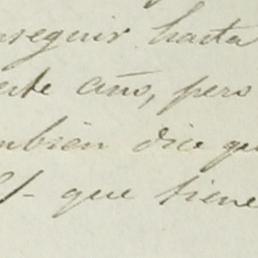 nseguir hasta
este año, pero
mbien dice qu
que tiene